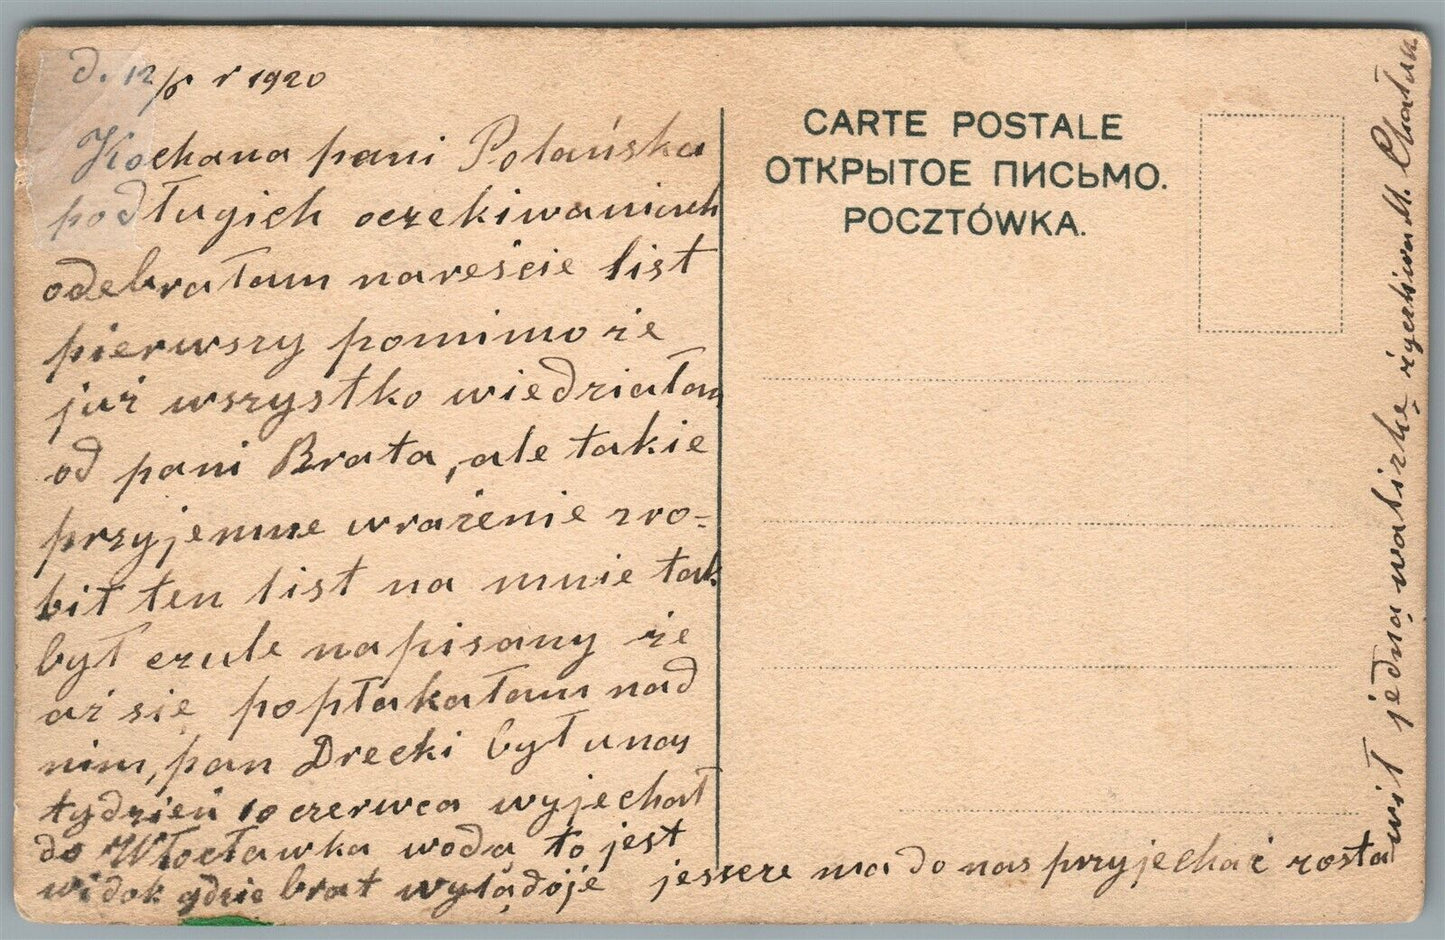 d. 12/6 r 1920
Kochana pani Polańska
podługich oczekiwaniach
odebrałam nareście list
pierwszy pomimo że
już wszystko wiedziałam
od pani Brata, ale takie
przyjemne wrażenie zro=
bił ten list na mnie tak
był czule napisany że
aż się popłakałam nad
nim, pan Drecki był unas
tydzień 10 czerwca wyjechał
do Włocławka wodą to jest
widok gdzie brat wylądóje
jeszcze ma do nas przyjechać zosta
wił jedną walizkę życzliwa M.
CARTE POSTALE
ОТКРЫТОЕ ПИСЬМО.
POCZTÓWKA.